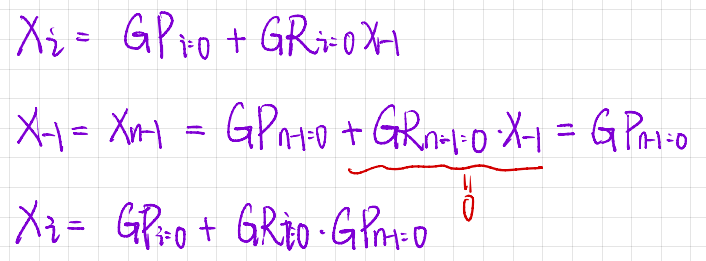 Xi = GPi:0 + GRi:0 X-1
X-1 = Xn-1 = GPn-1:0 + GRn-1:0 · X-1 = GPn-1:0
0
Xi = GPi:0 + GRi:0 · GPn-1:0